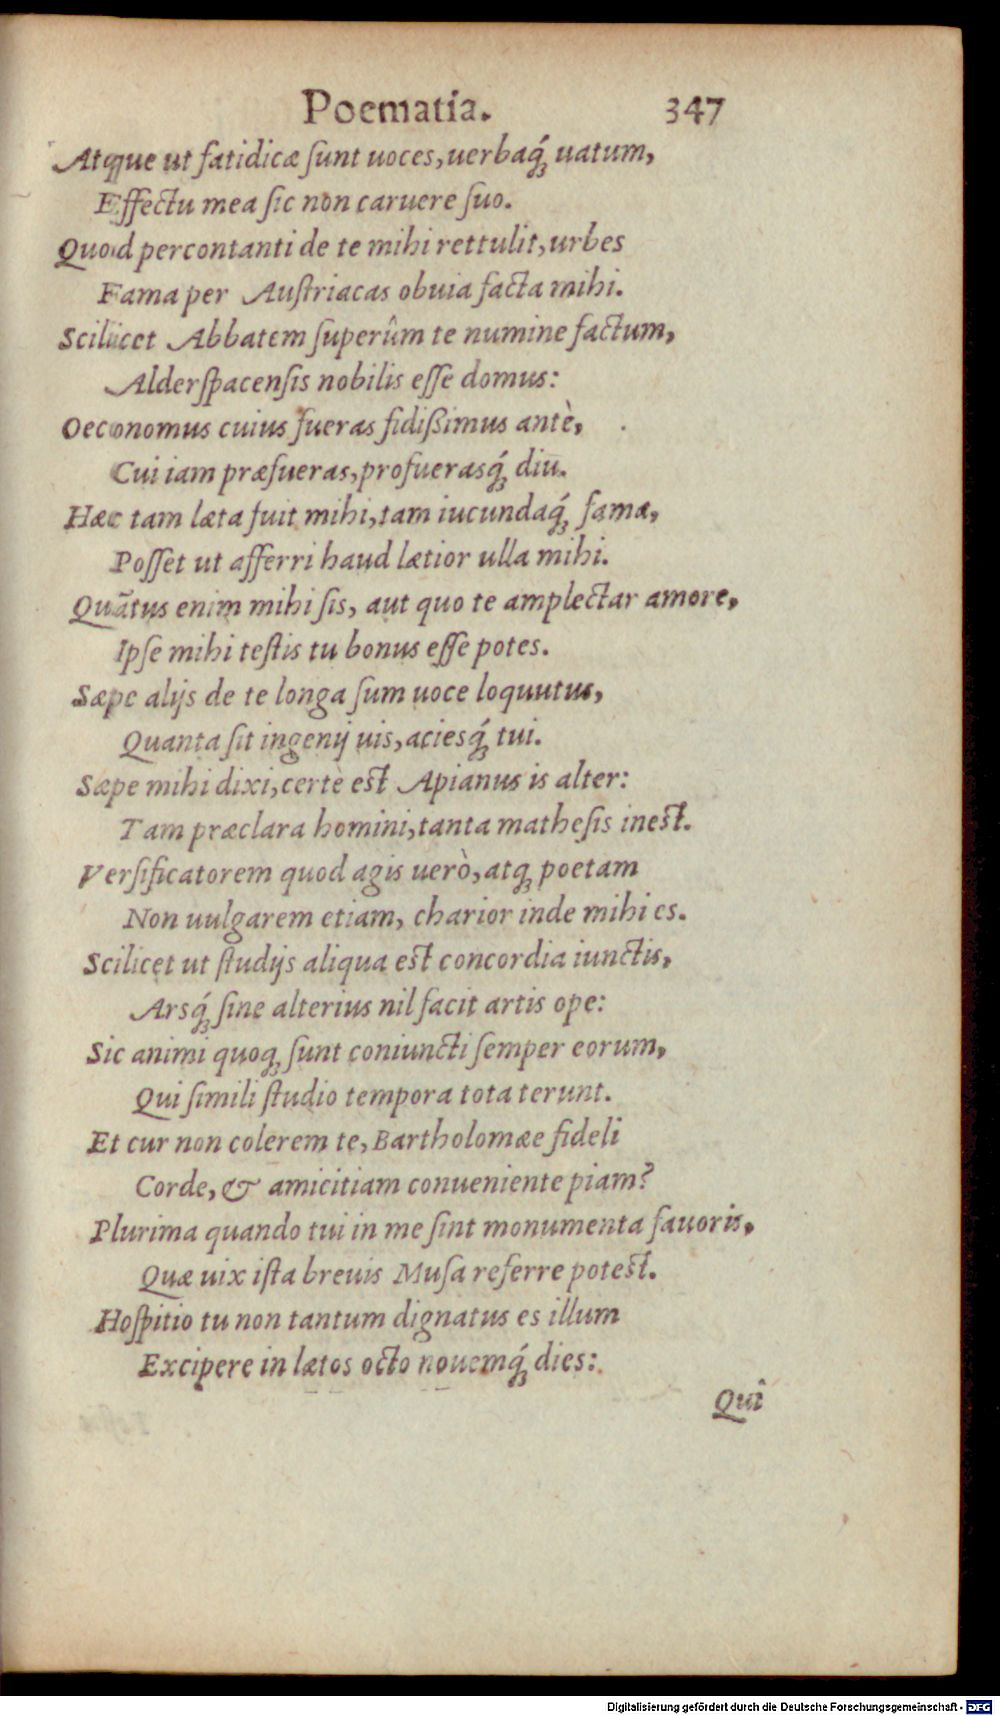 Poematia. 347
Atque ut fatidicæ ſunt uoces, uerbaq́; uatum,
Effectu mea ſic non caruere ſuo.
Quod percontanti de te mihi rettulit, urbes
Fama per Auſtriacas obuia facta mihi.
Scilicet Abbatem ſuperûm te numine factum,
Alderſpacenſis nobilis eſſe domus:
Oeconomus cuius fueras fidißimus antè,
Cui iam præfueras, profuerasq́; diu.
Hæc tam læta fuit mihi, tam iucundaq́; fama,
Poſſet ut afferri haud lætior ulla mihi.
Quãtus enim mihi ſis, aut quo te amplectar amore,
Ipſe mihi teſtis tu bonus eſſe potes.
Sæpe alijs de te longa ſum uoce loquutus,
Quanta ſit ingenij uis, aciesq́; tui.
Sæpe mihi dixi, certè eſt Apianus is alter:
Tam præclara homini, tanta matheſis ineſt.
Verſificatorem quod agis uerò, atq; poetam
Non uulgarem etiam, charior inde mihi es.
Scilicet ut ſtudijs aliqua eſt concordia iunctis,
Arsq́; ſine alterius nil facit artis ope:
Sic animi quoq; ſunt coniuncti ſemper eorum,
Qui ſimili ſtudio tempora tota terunt.
Et cur non colerem te, Bartholomæe fideli
Corde, & amicitiam conueniente piam?
Plurima quando tui in me ſint monumenta fauoris,
Quæ uix iſta breuis Muſa referre poteſt.
Hoſpitio tu non tantum dignatus es illum
Excipere in lætos octo nouemq́; dies:
Qui
Digitalisierung gefördert durch die Deutsche Forschungsgemeinschaft - DFG